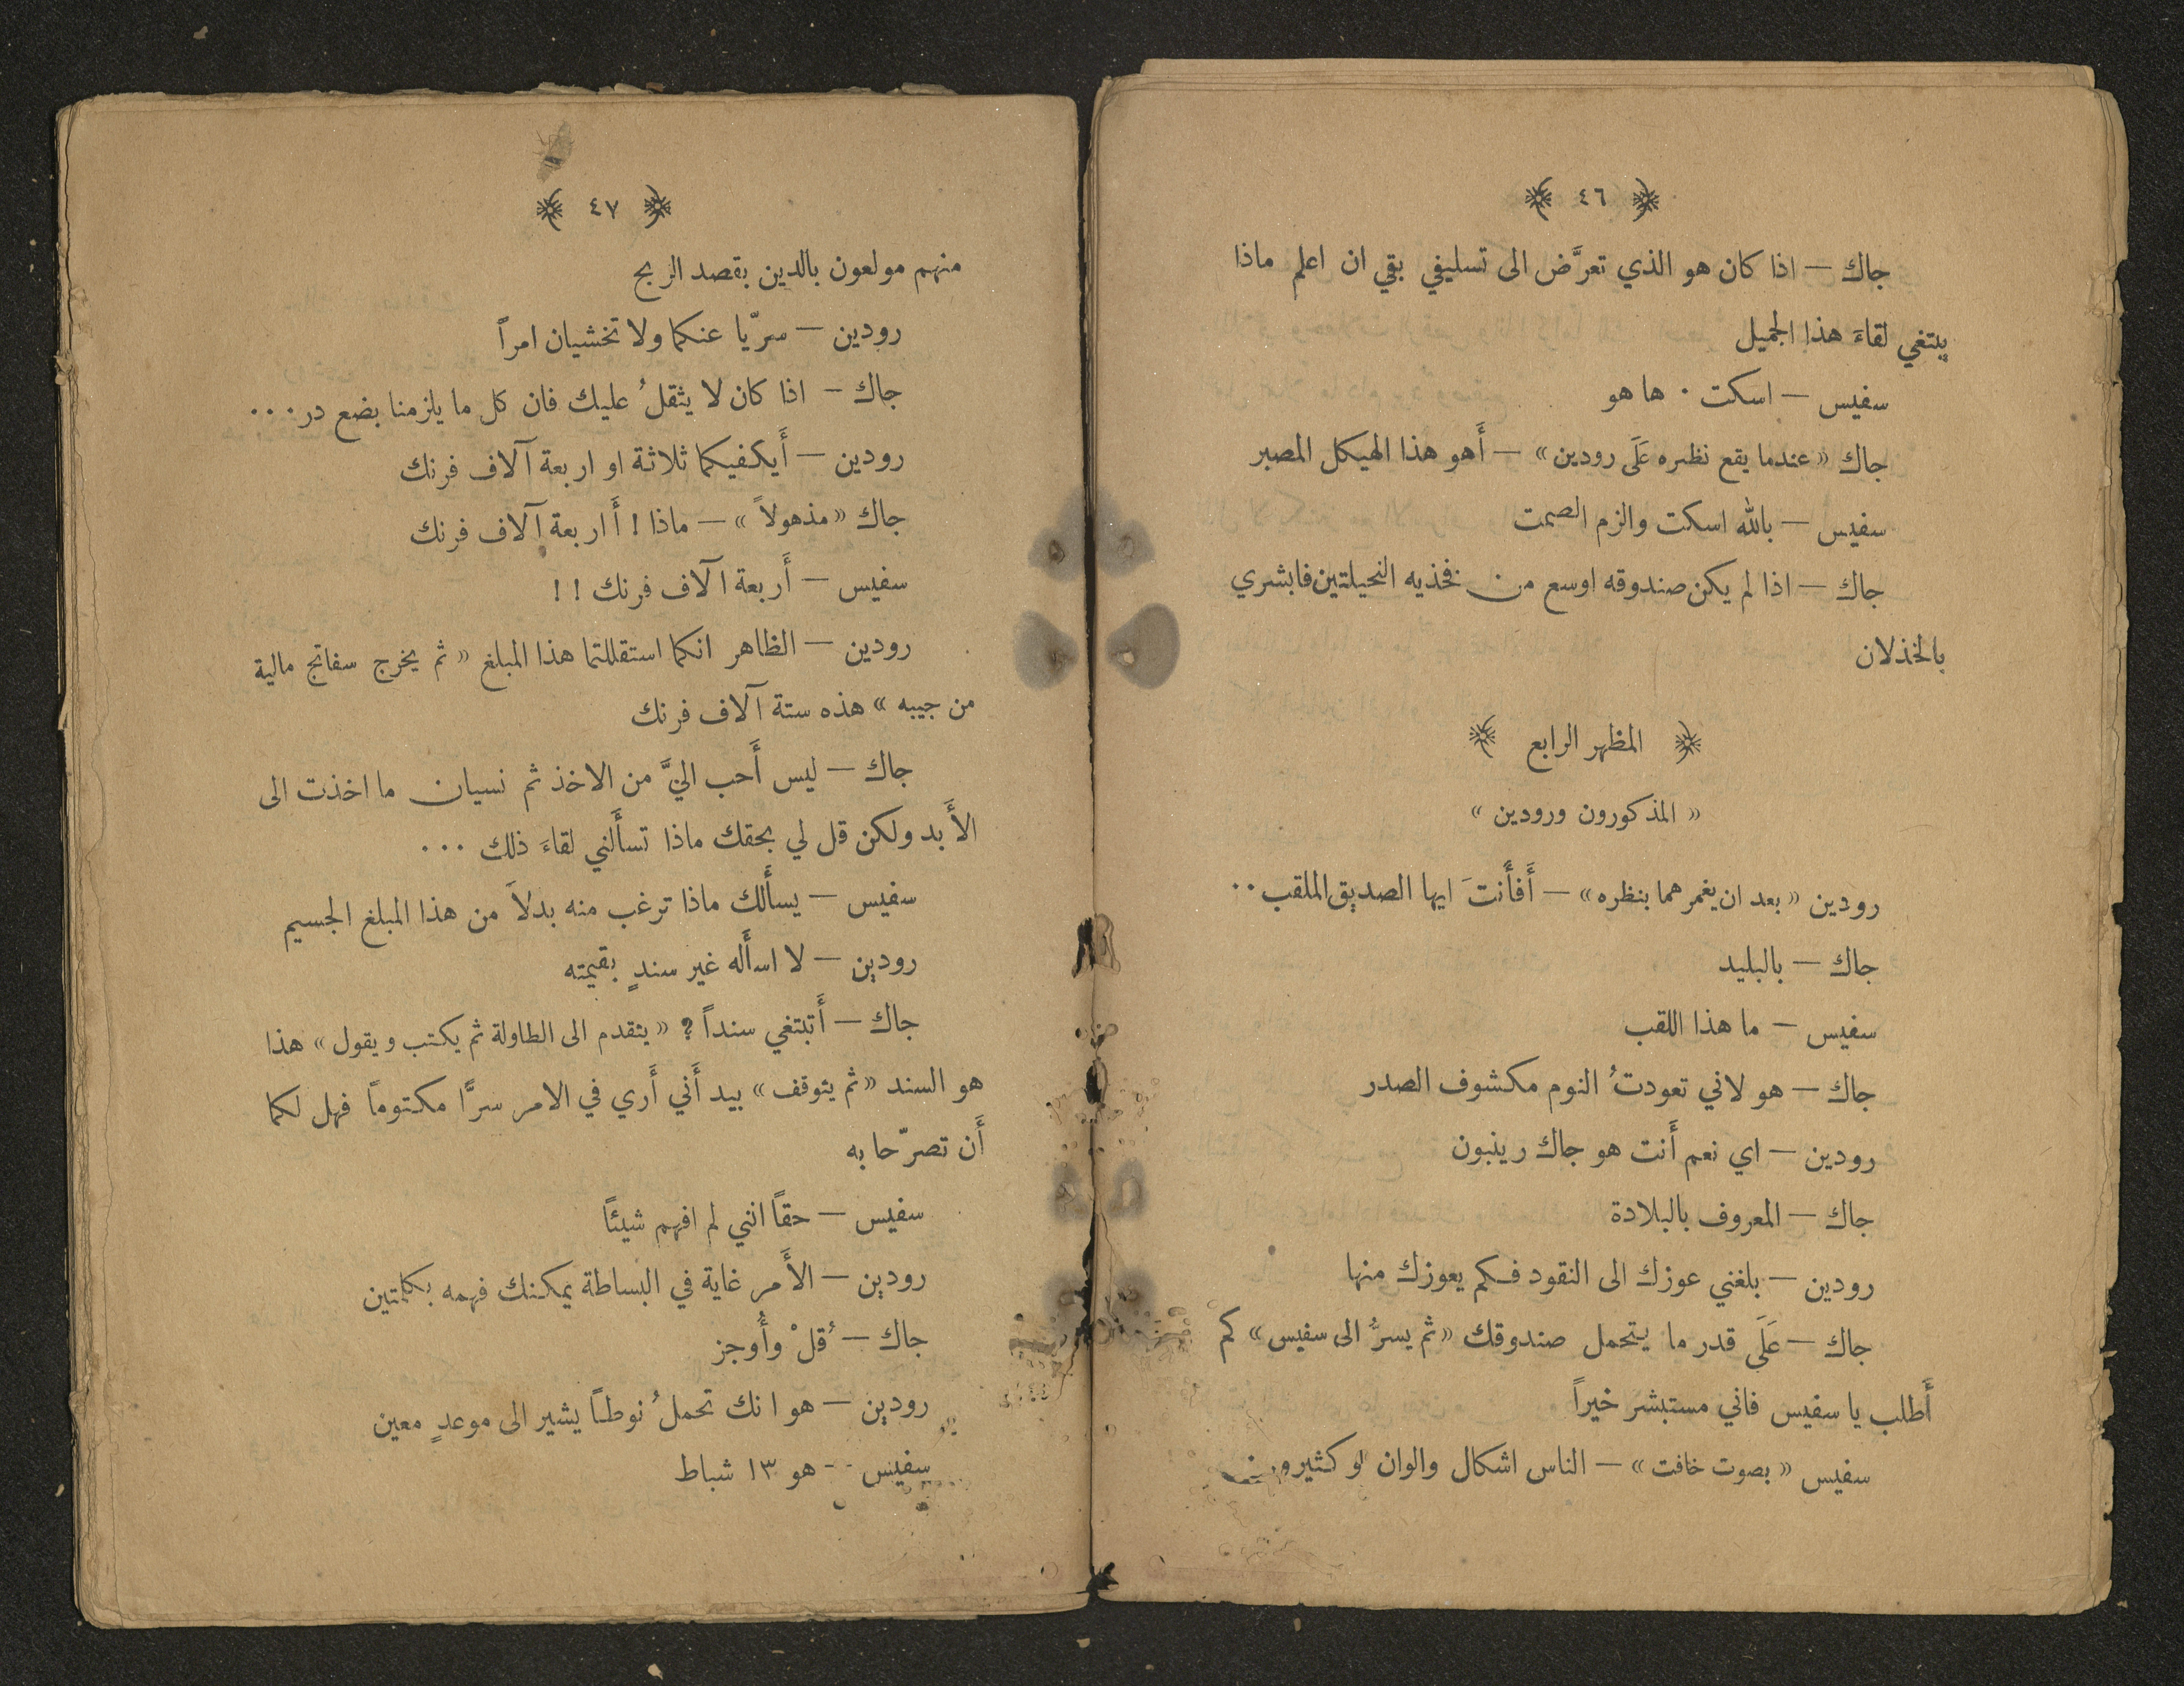 ﴿ ٤٦ ﴾
جاك — اذا كان هو الذي تعرَّض الى تسليفي بقي ان اعلم ماذا
يبتغي لقاءَ هذا الجميل
سفيس — اسكت · ها هو
جاك «عندما يقع نظره عَلَى رودين» — أَهو هذا الهيكل المصبر
سفيس — بالله اسكت والزم الصمت
جاك — اذا لم يكن صندوقه اوسع من فخذيه النحيلتين فابشري
بالخذلان
﴿ المظهر الرابع ﴾
« المذكورون ورودين »
رودين «بعد ان يغمرهما بنظره» — أَفأَنتَ ايها الصديق الملقب ··
جاك — بالبليد
سفيس — ما هذا اللقب
جاك — هو لاني تعودتُ النوم مكشوف الصدر
رودين — اي نعم أَنت هو جاك رينبون
جاك — المعروف بالبلادة
رودين — بلغني عوزك الى النقود فكم يعوزك منها
جاك — عَلَى قدر ما يتحمل صندوقك «ثم يسرُّ الى سفيس» كم
أَطلب يا سفيس فاني مستبشر خيراً
سفيس «بصوت خافت» — الناس اشكال والوان او كثيرون
﴿ ٤٧ ﴾
منهم مولعون بالدين بقصد الربح
رودين — سرّيا عنكما ولا تخشيان امراً
جاك — اذا كان لا يثقلُ عليك فان كل ما يلزمنا بضع در ···
رودين — أَيكفيكما ثلاثة او اربعة آلاف فرنك
جاك «مذهولاً» — ماذا ! أَ اربعة آلاف فرنك
سفيس — أَربعة آلاف فرنك ! !
رودين — الظاهر انكما استقللتما هذا المبلغ « ثم يخرج سفاتج مالية
من جيبه » هذه ستة آلاف فرنك
جاك — ليس أَحب اليَّ من الاخذ ثم نسيان ما اخذت الى
الأَبد ولكن قل لي بحقك ماذا تسأَلني لقاءَ ذلك ···
سفيس — يسأَلك ماذا ترغب منه بدلاً من هذا المبلغ الجسيم
رودين — لا اسأَله غير سندٍ بقيمته
جاك — أَتبتغي سنداً ؟ «يتقدم الى الطاولة ثم يكتب ويقول» هذا
هو السند «ثم يتوقف» بيد أَني أَري في الامر سرًّا مكتوماً فهل لكما
أَن تصرّحا به
سفيس — حقاً انني لم افهم شيئاً
رودين — الأَمر غاية في البساطة يمكنك فهمه بكلمتين
جاك — قُلْ وأَوجز
رودين — هو انك تحملُ نوطاً يشير الى موعدٍ معين
سفيس — هو ١٣ شباط